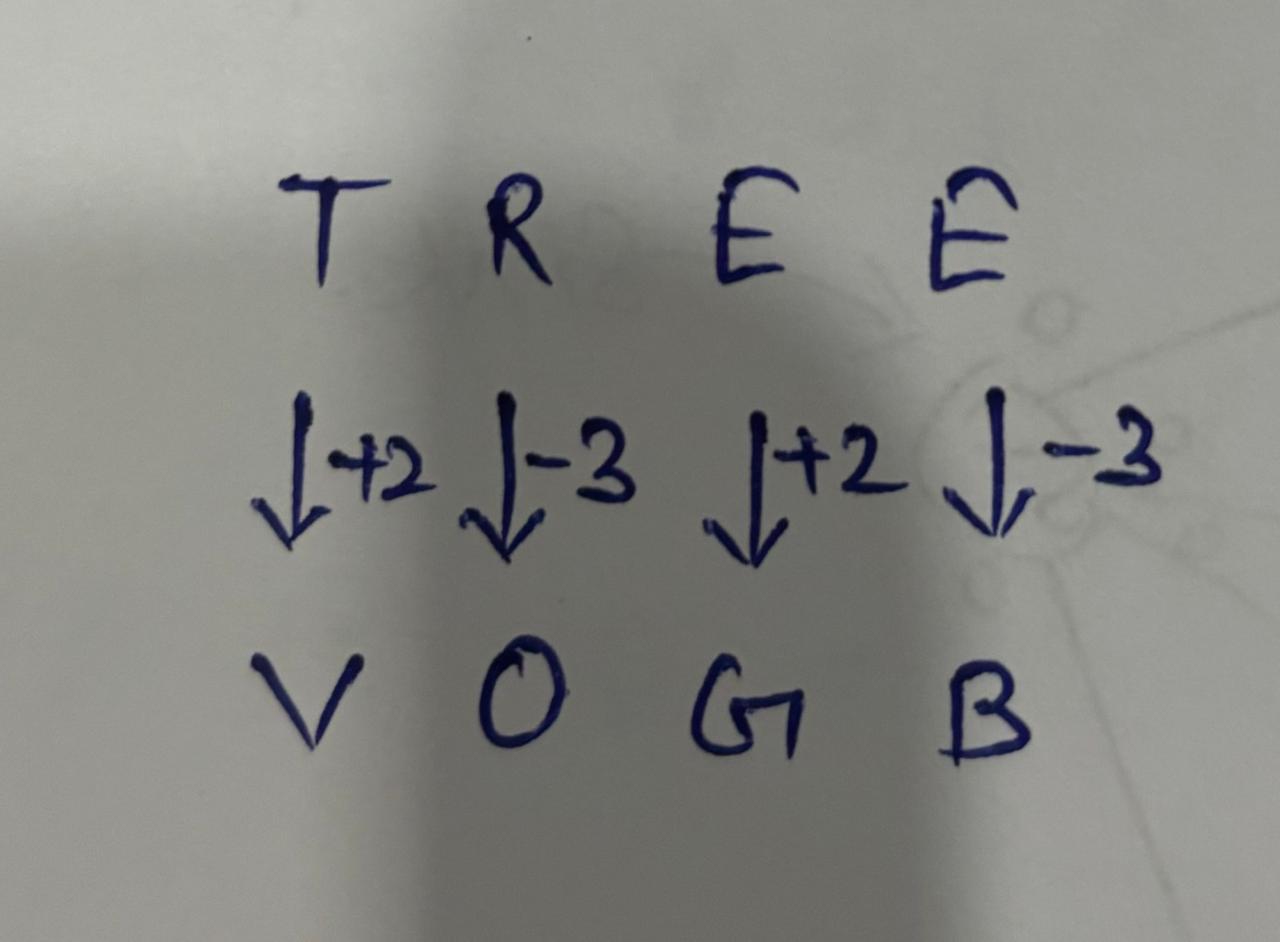 T R E E
↓+2 ↓-3 ↓+2 ↓-3
V O G B